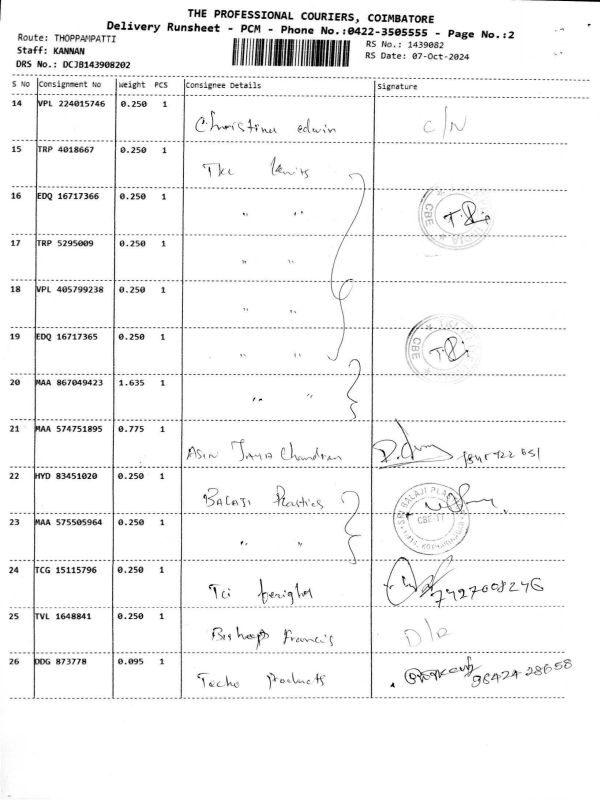 THE PROFESSIONAL COURIERS, COIMBATORE
Delivery Runsheet - PCM - Phone No.:0422-3505555 - Page No.:2
Route: THOPPAMPATTI
RS No.: 1439082
Staff: KANNAN
RS Date: 07-Oct-2024
DRS No.: DCJB143908202
S No Consignment No Weight PCS Consignee Details Signature
14 VPL 224015746 0.250 1 Christina edwin C/N
15 TRP 4018667 0.250 1 Tkc knits
16 EDQ 16717366 0.250 1 " " CBE
17 TRP 5295009 0.250 1 " "
18 VPL 405799238 0.250 1 " "
19 EDQ 16717365 0.250 1 " " CBE
20 MAA 867049423 1.635 1 " "
21 MAA 574751895 0.775 1 ASIN JAYA Chandran
22 HYD 83451020 0.250 1 BALAJI Plastics SRI BALAJI
23 MAA 575505964 0.250 1 " "
24 TCG 15115796 0.250 1 Tci 7427008246
25 TVL 1648841 0.250 1 Bishop Francis D/R
26 DDG 873778 0.095 1 Techo Products 98424 28658